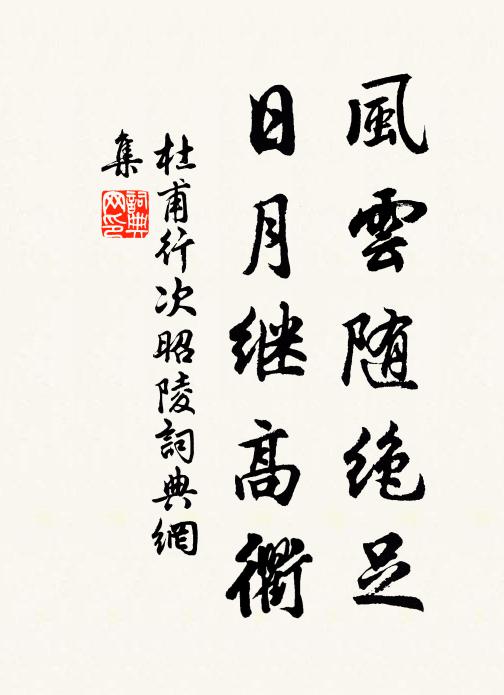 風雲随绝足
日月继高衢
杜甫行次昭陵詞典網
集
詞典
网印